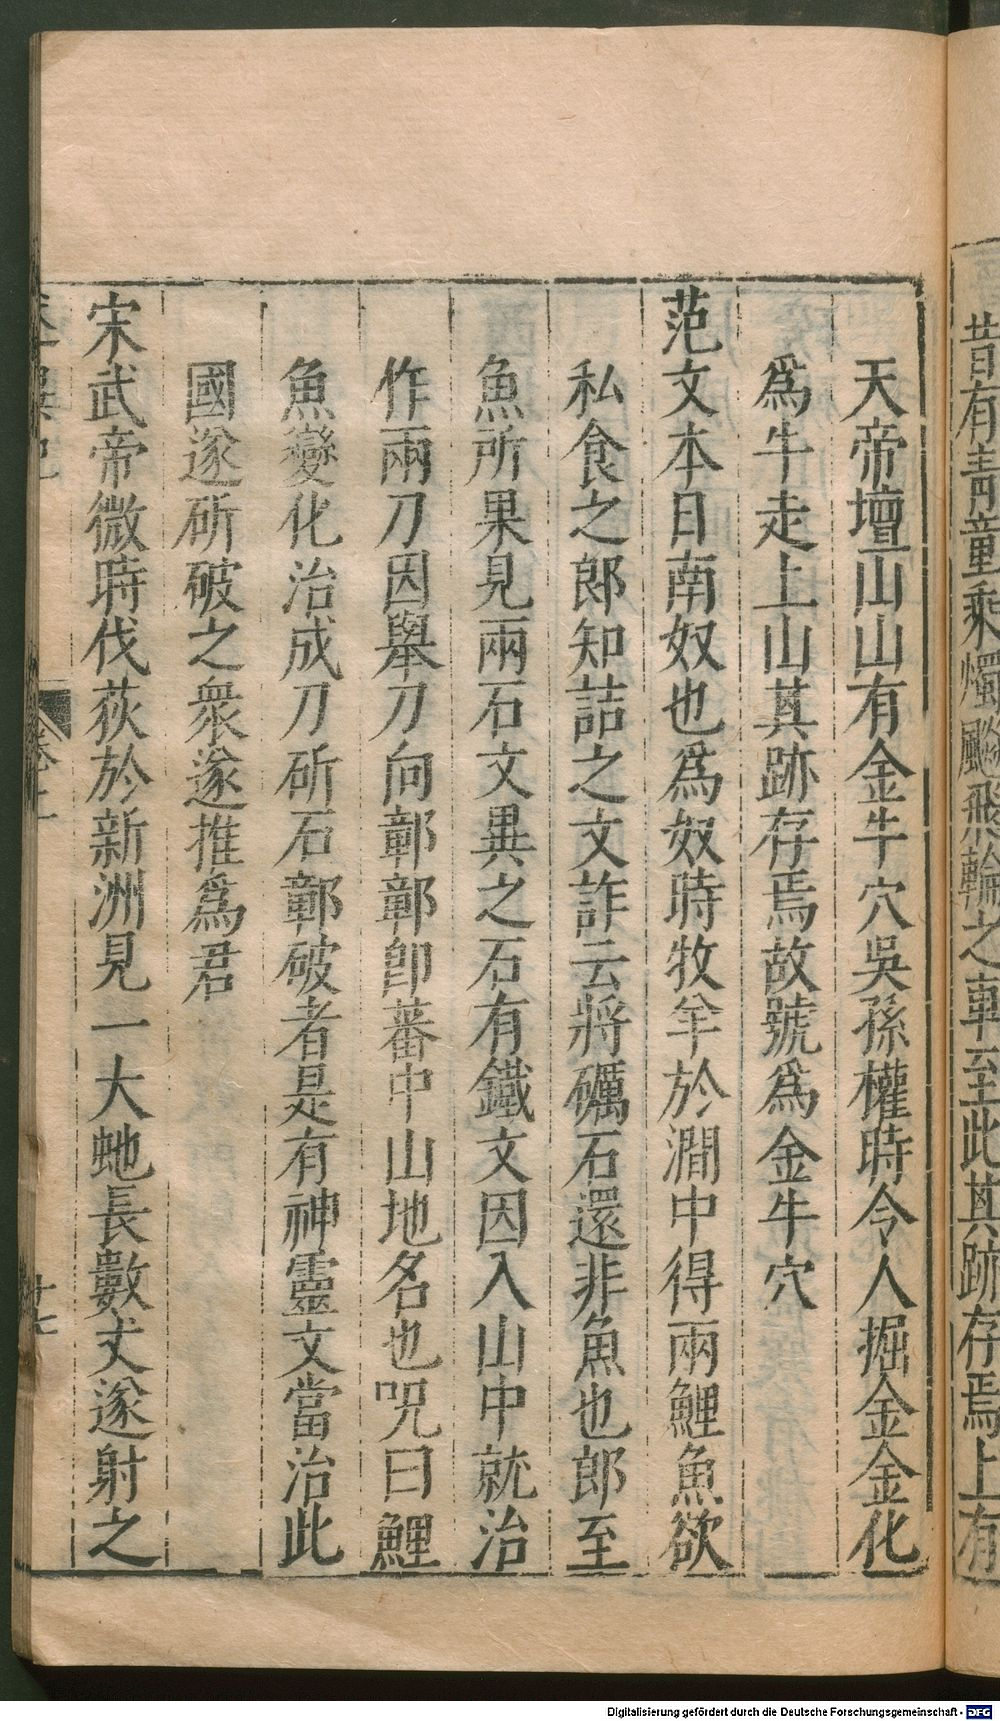 昔有青童乘燭飈飛輪之車至此其跡存焉上有
天帝壇山山有金牛穴吳孫權時令人掘金金化
爲牛走上山其跡存焉故號爲金牛穴
范文本日南奴也爲奴時牧羊於澗中得兩鯉魚欲
私食之郎知詰之文詐云將礪石還非魚也郎至
魚所果見兩石文異之石有鐵文因入山中就治
作兩刀因舉刀向鄣鄣卽蕃中山地名也呪曰鯉
魚變化治成刀斫石鄣破者是有神靈文當治此
國遂斫破之衆遂推爲君
宋武帝微時伐荻於新洲見一大虵長數丈遂射之
卷上
十七
Digitalisierung gefördert durch die Deutsche Forschungsgemeinschaft - DFG